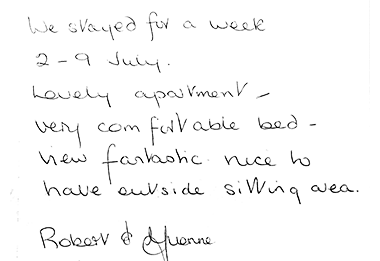 We stayed for a week
2 - 9 July.
Lovely apartment -
very comfortable bed -
view fantastic. nice to
have outside sitting area.
Robert &